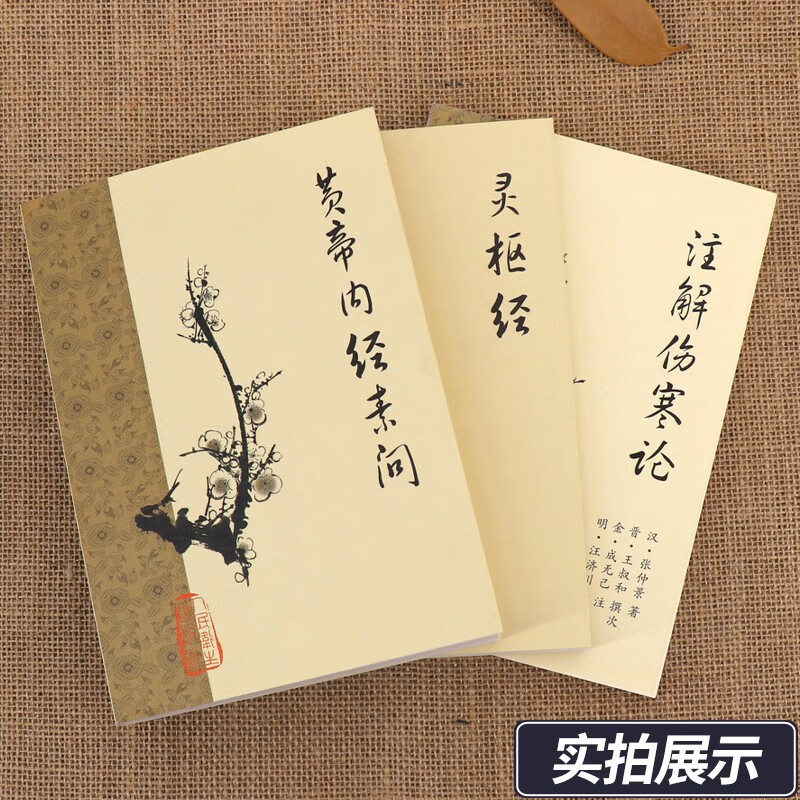 黄帝内经素问
灵枢经
注解伤寒论
汉·张仲景 著
晋·王叔和 撰次
金·成无己 注
明·汪济川
人民卫生
实拍展示